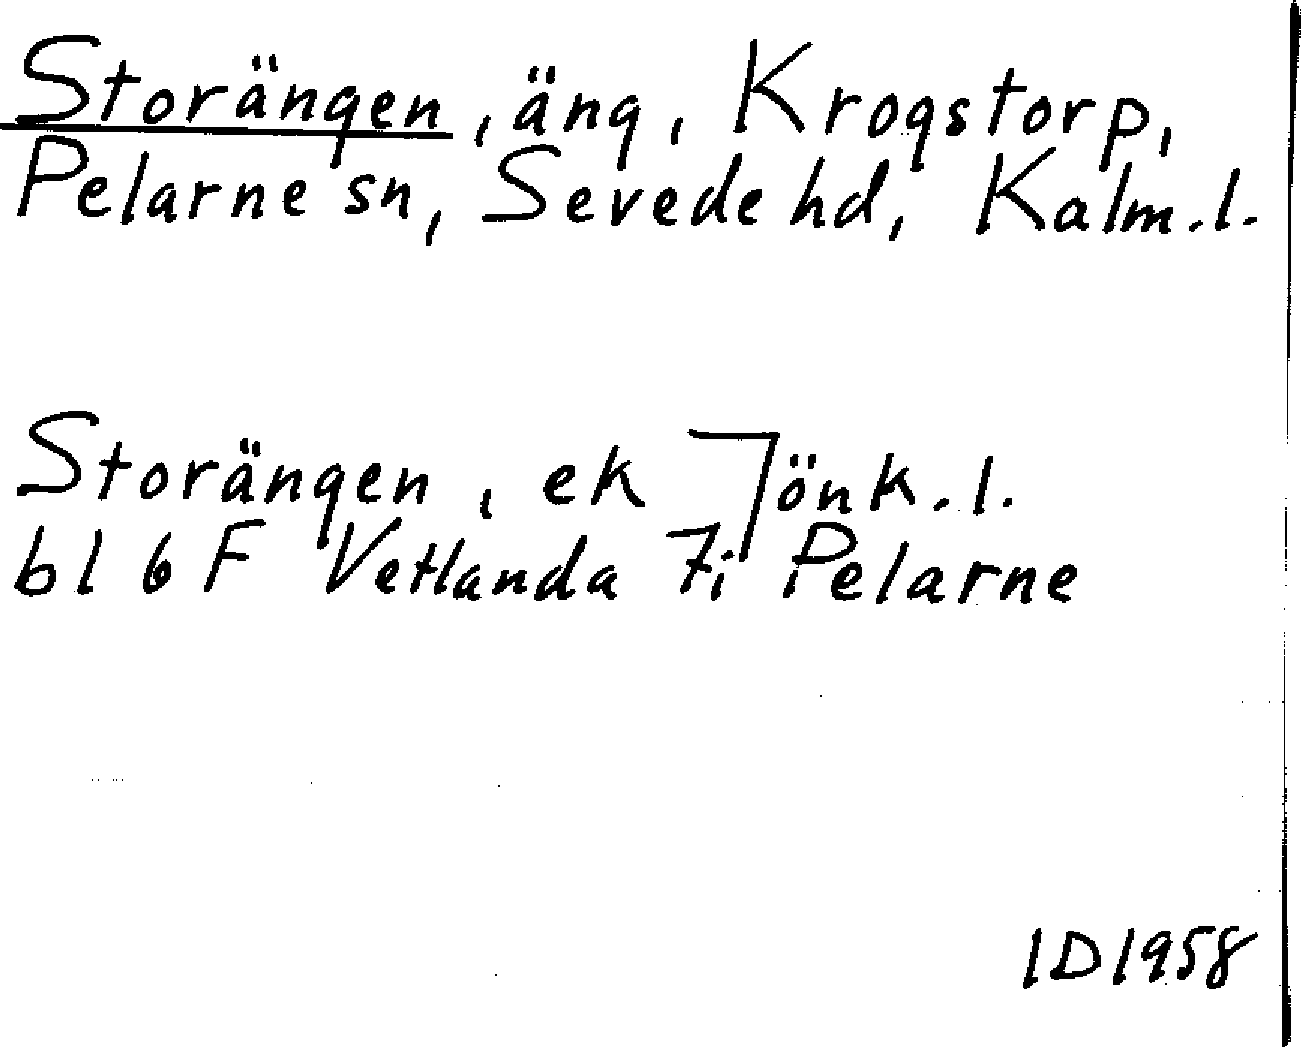 Storängen, äng, Krogstorp,
Pelarne sn, Sevede hd, Kalm.l.
Storängen, ek Jönk.l.
bl 6 F Vetlanda 7i Pelarne
ID1958